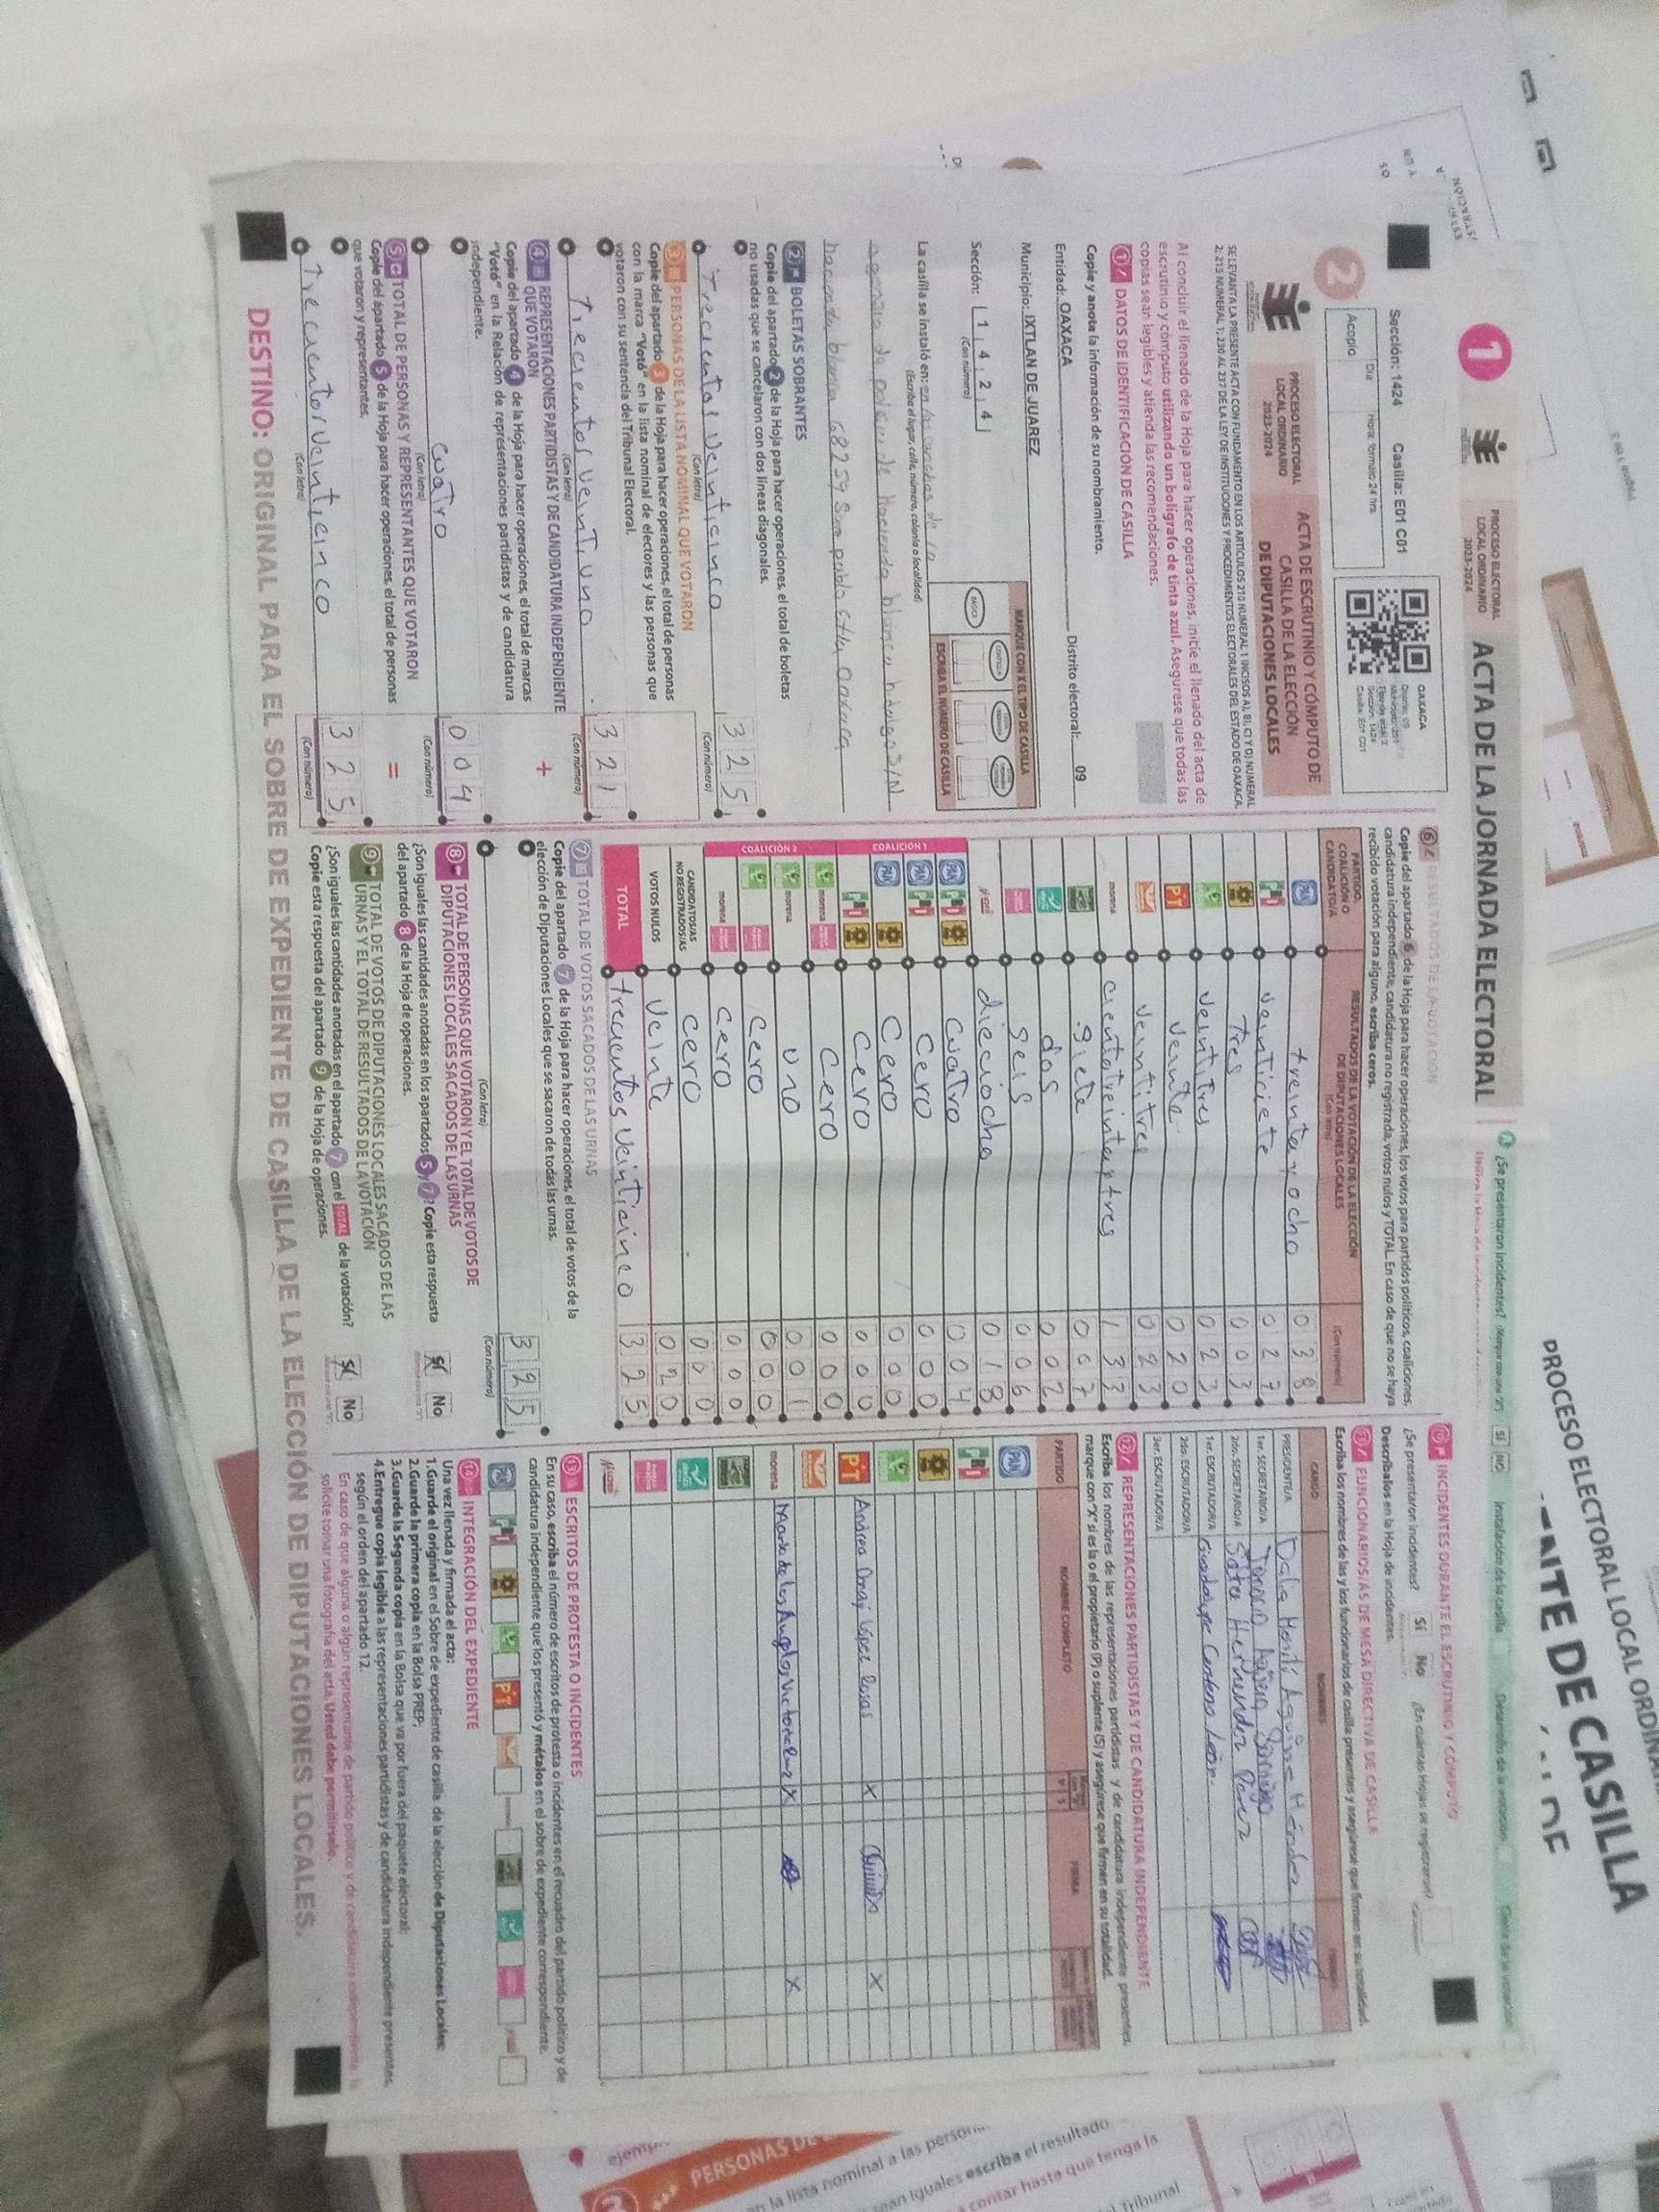 PROCESO ELECTORAL LOCAL ORDINARIO
DE CASILLA
1
PROCESO ELECTORAL
LOCAL ORDINARIO
2023-2024
ACTA DE LA JORNADA ELECTORAL
¿Se presentaron incidentes?
SÍ NO
Instalación de la casilla
Sección: 1424 Casilla: E01 C01
OAXACA
Sección: 1424
Casilla: E01 C01
Día
Hora: formato 24 hrs.
Acopio
2
PROCESO ELECTORAL
LOCAL ORDINARIO
2023-2024
ACTA DE ESCRUTINIO Y CÓMPUTO DE
CASILLA DE LA ELECCIÓN
DE DIPUTACIONES LOCALES
SE LEVANTA LA PRESENTE ACTA CON FUNDAMENTO EN LOS ARTÍCULOS 210 NUMERAL 1 INCISOS A), B), C) Y D); NUMERAL
2; 215 NUMERAL 1; 230 AL 237 DE LA LEY DE INSTITUCIONES Y PROCEDIMIENTOS ELECTORALES DEL ESTADO DE OAXACA.
Al concluir el llenado de la Hoja para hacer operaciones, inicie el llenado del acta de
escrutinio y cómputo utilizando un bolígrafo de tinta azul. Asegúrese que todas las
copias sean legibles y atienda las recomendaciones.
1 DATOS DE IDENTIFICACIÓN DE CASILLA
Copie y anota la información de su nombramiento.
Entidad: OAXACA Distrito electoral: 09
Municipio: IXTLAN DE JUAREZ
Sección: 1 4 2 4
(Con número)
MARQUE CON X EL TIPO DE CASILLA
ESCRIBA EL NÚMERO DE CASILLA
La casilla se instaló en: en las canchas de la
(Escriba el lugar, calle, número, colonia o localidad)
agencia de policía de hacienda blanca hidalgo S/N
hacienda blanca 68259 San pablo Etla, Oaxaca
2 BOLETAS SOBRANTES
Copie del apartado 2 de la Hoja para hacer operaciones, el total de boletas
no usadas que se cancelaron con dos líneas diagonales.
Trecientos Veinticinco 3 2 5
(Con letra) (Con número)
3 PERSONAS DE LA LISTA NOMINAL QUE VOTARON
Copie del apartado 3 de la Hoja para hacer operaciones, el total de personas
con la marca "Votó" en la lista nominal de electores y las personas que
votaron con su sentencia del Tribunal Electoral.
Trecientos veintiuno 3 2 1
(Con letra) (Con número)
4 REPRESENTACIONES PARTIDISTAS Y DE CANDIDATURA INDEPENDIENTE
QUE VOTARON
+
Copie del apartado 4 de la Hoja para hacer operaciones, el total de marcas
"Votó" en la Relación de representaciones partidistas y de candidatura
independiente.
cuatro 0 0 4
(Con letra) (Con número)
5 TOTAL DE PERSONAS Y REPRESENTANTES QUE VOTARON
=
Copie del apartado 5 de la Hoja para hacer operaciones, el total de personas
que votaron y representantes.
Trecientos veinticinco 3 2 5
(Con letra) (Con número)
6 RESULTADOS DE LA VOTACIÓN
Copie del apartado 6 de la Hoja para hacer operaciones, los votos para partidos políticos, coaliciones,
candidatura independiente, candidatura no registrada, votos nulos y TOTAL. En caso de que no se haya
recibido votación para alguno, escriba ceros.
PARTIDO,
COALICIÓN O
CANDIDATO/A
RESULTADOS DE LA VOTACIÓN DE LA ELECCIÓN
DE DIPUTACIONES LOCALES
(Con letra)
(Con número)
PAN treinta y ocho 0 3 8
PRI veintisiete 0 2 7
Tres 0 0 3
veintitres 0 2 3
PT veinte 0 2 0
veintitres 0 2 3
morena cientotreinta y tres 1 3 3
siete 0 0 7
dos 0 0 2
seis 0 0 6
dieciocho 0 1 8
COALICIÓN 1
PAN PRI Cuatro 0 0 4
PAN PRI cero 0 0 0
PAN Cero 0 0 0
PRI Cero 0 0 0
COALICIÓN 2
morena Cero 0 0 0
morena uno 0 0 1
Cero 0 0 0
morena cero 0 0 0
CANDIDATOS/AS
NO REGISTRADOS/AS cero 0 0 0
VOTOS NULOS Veinte 0 2 0
TOTAL trecientos veinticinco 3 2 5
7 TOTAL DE VOTOS SACADOS DE LAS URNAS
Copie del apartado 7 de la Hoja para hacer operaciones, el total de votos de la
elección de Diputaciones Locales que se sacaron de todas las urnas.
3 2 5
(Con letra) (Con número)
8 TOTAL DE PERSONAS QUE VOTARON Y EL TOTAL DE VOTOS DE
DIPUTACIONES LOCALES SACADOS DE LAS URNAS
¿Son iguales las cantidades anotadas en los apartados 5 y 7? Copie esta respuesta
del apartado 8 de la Hoja de operaciones.
Sí No
9 TOTAL DE VOTOS DE DIPUTACIONES LOCALES SACADOS DE LAS
URNAS Y EL TOTAL DE RESULTADOS DE LA VOTACIÓN
¿Son iguales las cantidades anotadas en el apartado 7 con el TOTAL de la votación?
Copie esta respuesta del apartado 9 de la Hoja de operaciones.
Sí No
10 INCIDENTES DURANTE EL ESCRUTINIO Y CÓMPUTO
¿Se presentaron incidentes? Sí No ¿En cuántas Hojas se registraron?
Descríbalos en la Hoja de incidentes.
11 FUNCIONARIOS/AS DE MESA DIRECTIVA DE CASILLA
Escriba los nombres de las y los funcionarios de casilla presentes y asegúrese que firmen en su totalidad.
CARGO NOMBRES
PRESIDENTE/A
1er. SECRETARIO/A
2do. SECRETARIO/A Hernandez
1er. ESCRUTADOR/A Guadalupe
2do. ESCRUTADOR/A
3er. ESCRUTADOR/A
12 REPRESENTACIONES PARTIDISTAS Y DE CANDIDATURA INDEPENDIENTE
Escriba los nombres de las representaciones partidistas y de candidatura independiente presentes,
marque con "X" si es la o el propietario (P) o suplente (S) y asegúrese que firmen en su totalidad.
PARTIDO NOMBRE COMPLETO FIRMA
PAN
PRI
PT Andrea López Rosas X X
morena Maria de los Angeles X X
13 ESCRITOS DE PROTESTA O INCIDENTES
En su caso, escriba el número de escritos de protesta o incidentes en el recuadro del partido político y de
candidatura independiente que los presentó y métalos en el sobre de expediente correspondiente.
14 INTEGRACIÓN DEL EXPEDIENTE
Una vez llenada y firmada el acta:
1.Guarde el original en el Sobre de expediente de casilla de la elección de Diputaciones Locales;
2.Guarde la primera copia en la Bolsa PREP;
3.Guarde la Segunda copia en la Bolsa que va por fuera del paquete electoral;
4.Entregue copia legible a las representaciones partidistas y de candidatura independiente presentes,
según el orden del apartado 12.
En caso de que alguna o algún representante de partido político y de candidatura independiente, le
solicite tomar una fotografía del acta, Usted debe permitírselo.
DESTINO: ORIGINAL PARA EL SOBRE DE EXPEDIENTE DE CASILLA DE LA ELECCIÓN DE DIPUTACIONES LOCALES.
PERSONAS DE
en la lista nominal a las
sean iguales escriba el resultado
contar hasta que tenga la
Tribunal